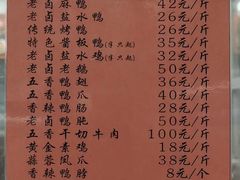 老卤麻鸭 42元/斤
老卤盐水鸭 26元/斤
传统烤鸭 26元/斤
特色酱板鸭(李只起) 35元/斤
老卤盐水鸡(李只起) 32元/斤
老卤老鹅 50元/斤
五香鸭翅 36元/斤
五香鸭爪 40元/斤
香辣鸭肠 28元/斤
老卤鸭肫 50元/斤
五香干切牛肉 100元/斤
黄金素鸡 18元/斤
蒜蓉凤爪 38元/斤
香辣鸭脖 8元/个